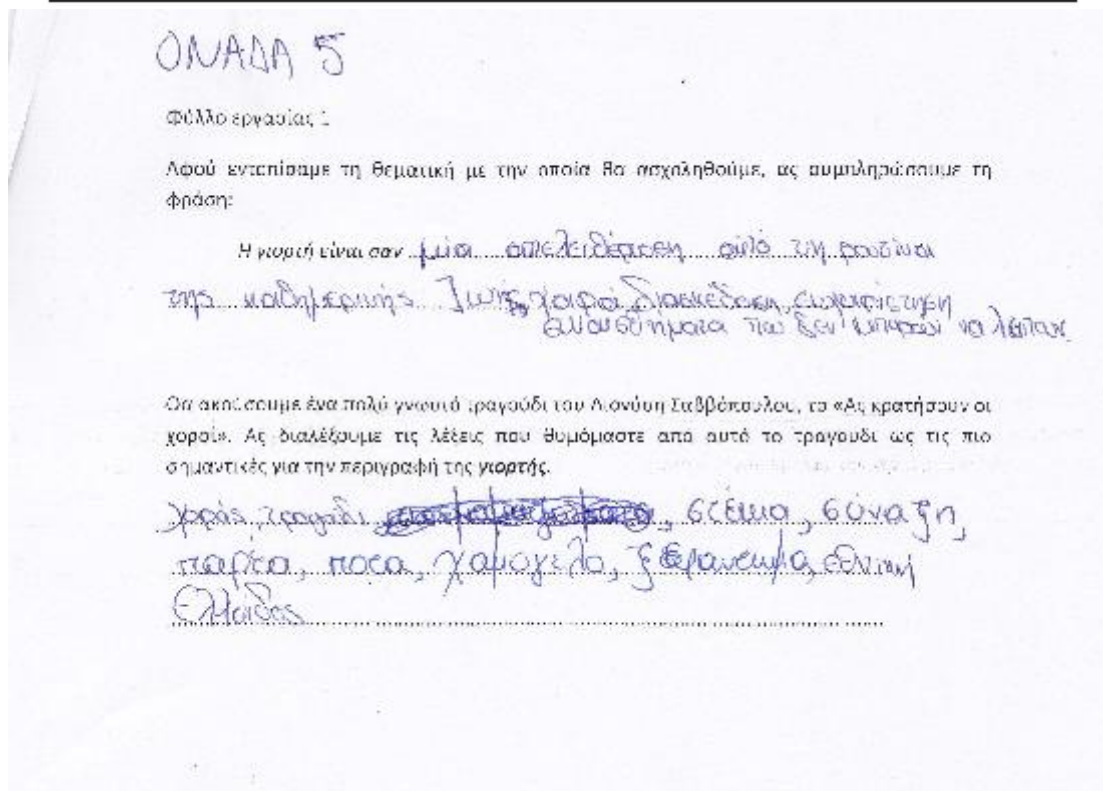 ΟΜΑΔΑ 5
Φύλλο εργασίας 1
Αφού εντοπίσαμε τη θεματική με την οποία θα ασχοληθούμε, ας συμπληρώσουμε τη
φράση:
Η γιορτή είναι σαν μία απελευθέρωση από τη ρουτίνα
της καθημερινής ζωής, χαρά, διασκέδαση,
που δεν μπορούν να λείπουν
Θα ακούσουμε ένα πολύ γνωστό τραγούδι του Διονύση Σαββόπουλου, το «Ας κρατήσουν οι
χοροί». Ας διαλέξουμε τις λέξεις που θυμόμαστε από αυτό το τραγούδι ως τις πιο
σημαντικές για την περιγραφή της γιορτής.
χορός, τραγούδι, στέκια, σύναξη,
παρέα, ποτά, χαμόγελο,
Ελλάδας